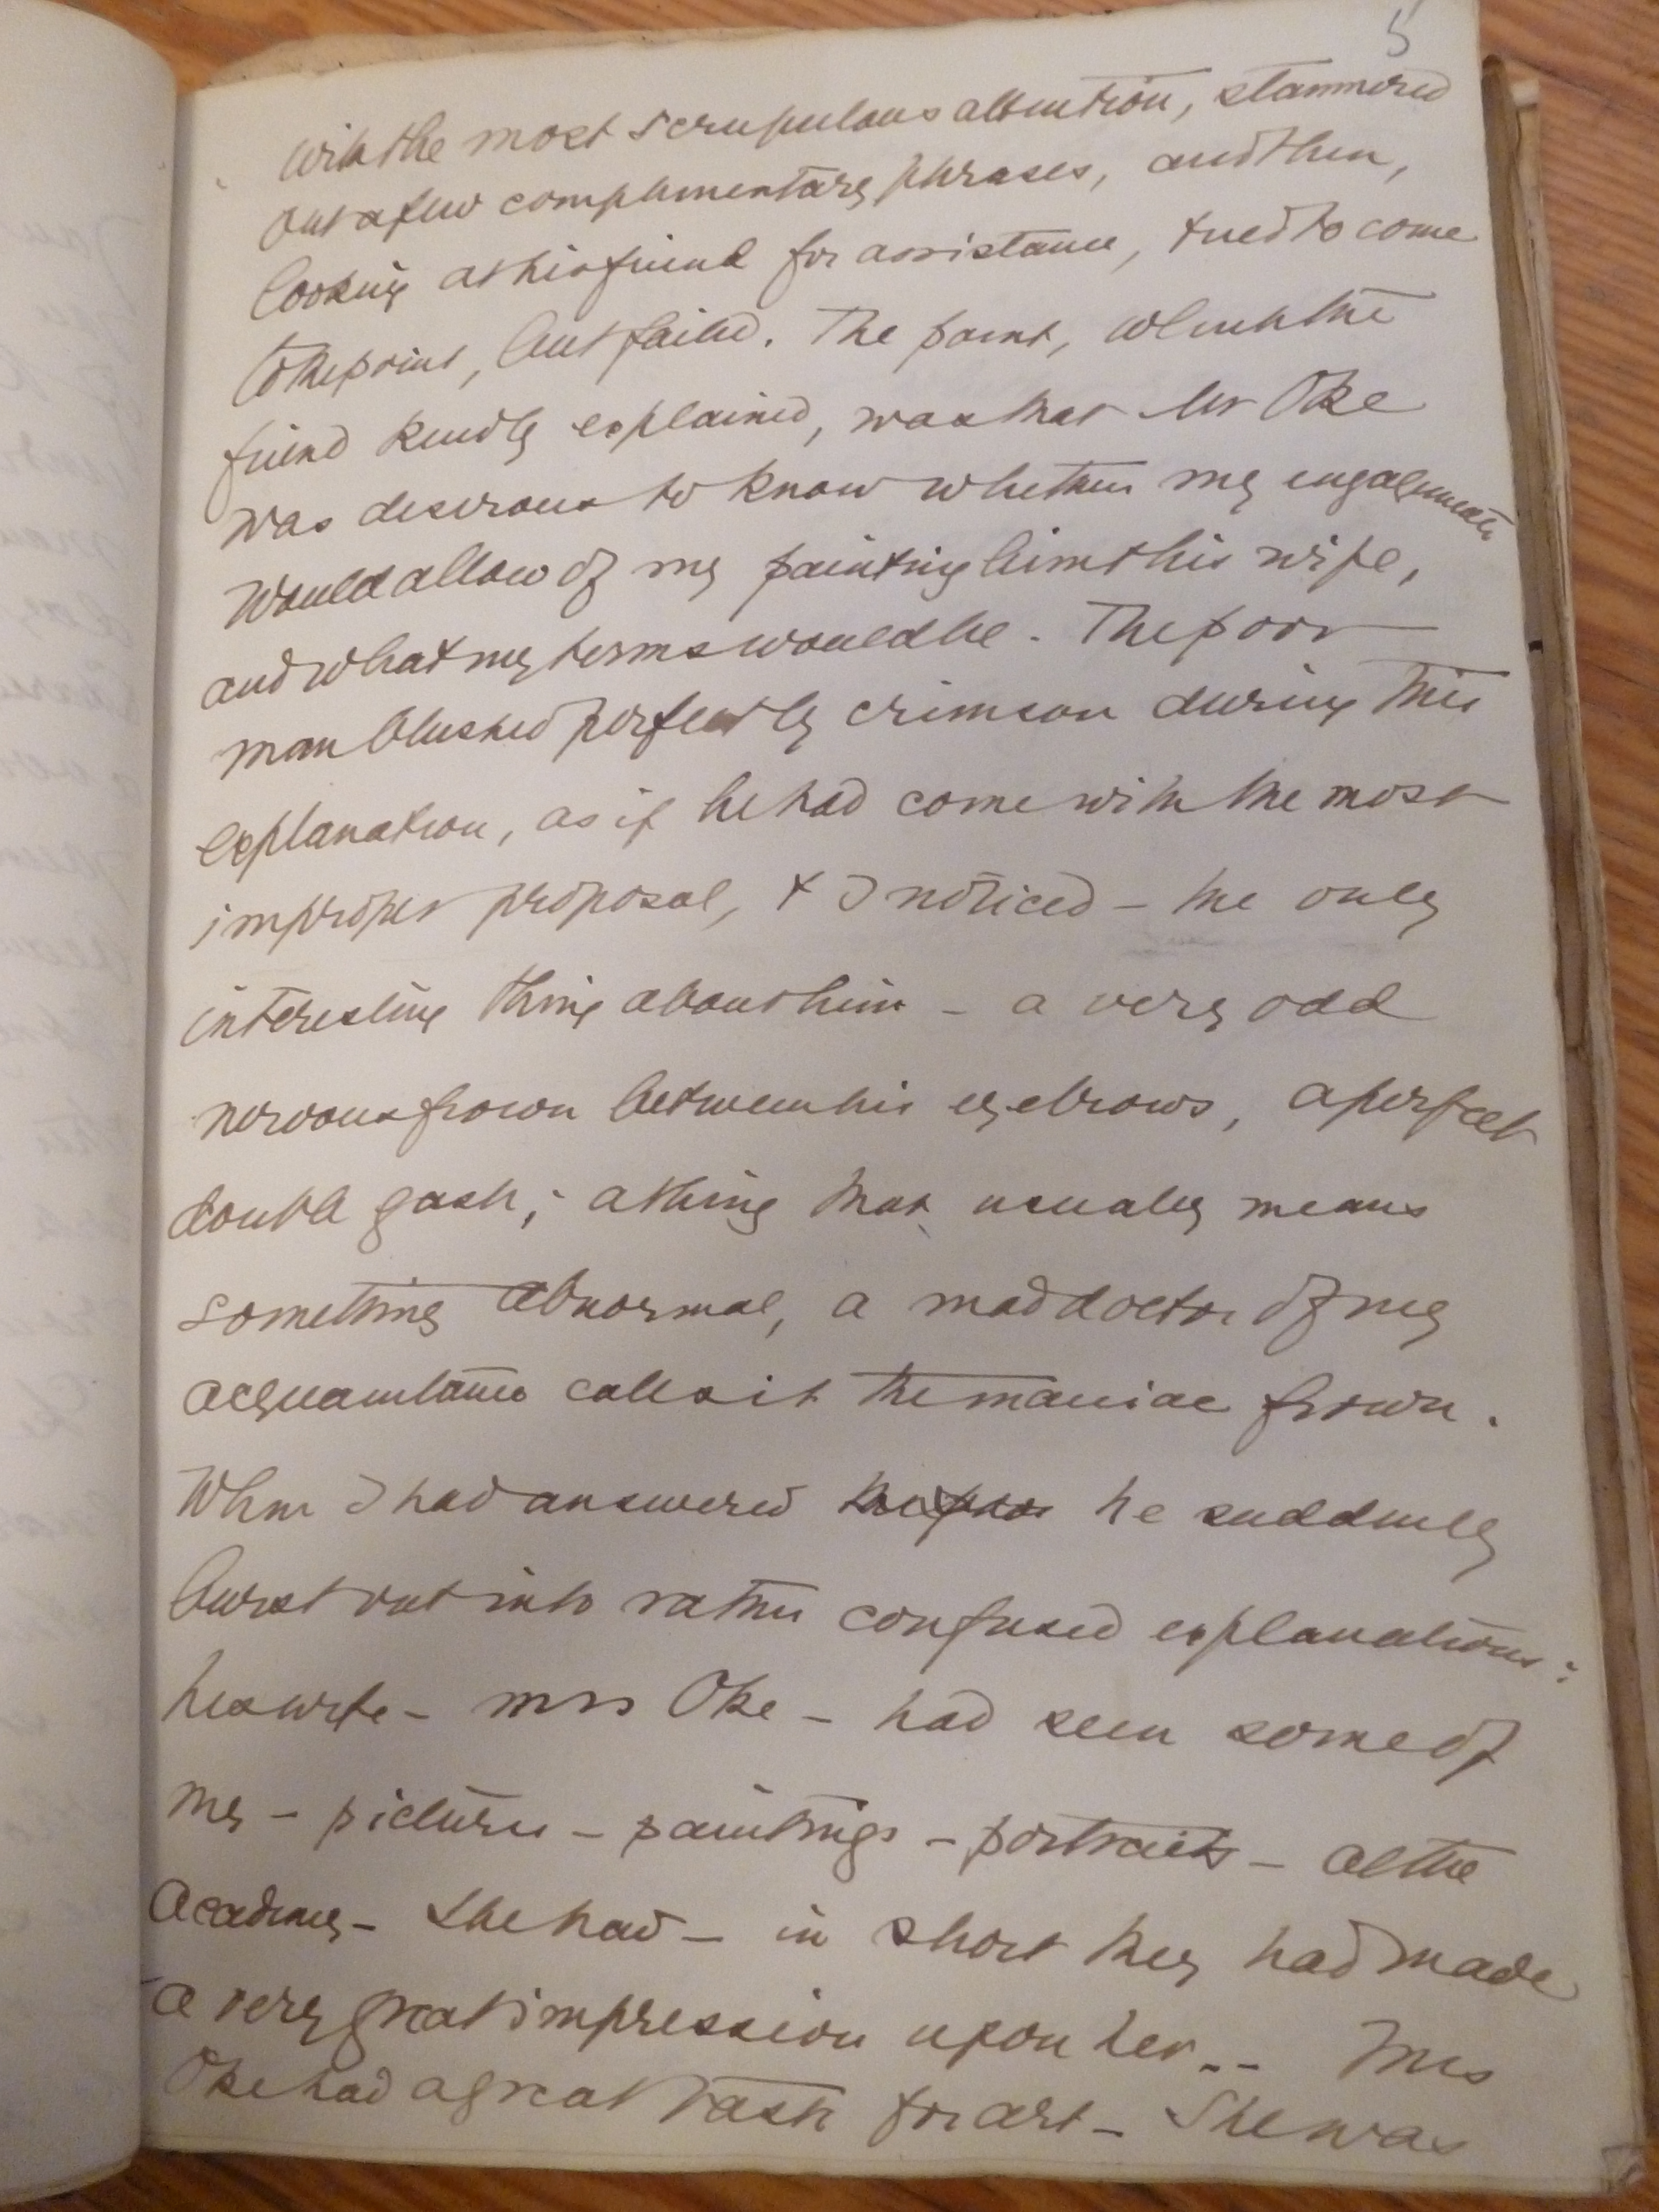 5
with the most scrupulous attention, stammered
out a few complimentary phrases, and then,
looking at his friend for assistance, tried to come
to the point, but failed. The point, which the
friend kindly explained, was that Mr Oke
was desirous to know whether my engagements
would allow of my painting him & his wife,
and what my terms would be. The poor
man blushed perfectly crimson during this
explanation, as if he had come with the most
improper proposal, & I noticed – the only
interesting thing about him – a very odd
nervous frown between his eyebrows, a perfect
double gash; a thing that usually means
something abnormal, a mad doctor of my
acquaintance calls it the maniac frown.
When I had answered he suddenly
burst out into rather confused explanations:
his wife – Mrs Oke – had seen some of
my – pictures – paintings – portraits – at the
Academy – she had – in short they had made
a very great impression upon her.. Mrs
Oke had a great taste for art – She was